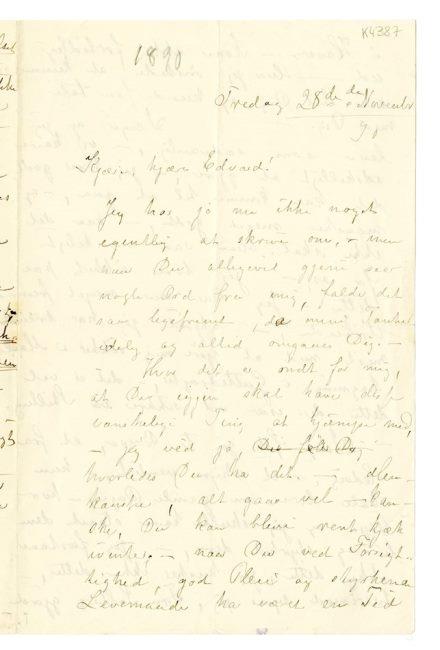 K4387
1890
Fredag 28de de November
90
Kjære, kjære Edvard!
Jeg har jo nu ikke noget
egentlig at skrive om, men
naar Du alligevel gjerne seer
nogle Ord fra mig, falde det
saa ligefremt, da mine Tanker
idelig og altid omgaaes Dig. –
– Hvor det er ondt for mig,
at Du igjen skal have disse
vanskelige Ting at kjæmpe med,
– jeg véd jo,
hvorledes Du ha det. –
kanske, alt gaar vel – kan-
ske, Du kan blive rent kjæk
– naar Du ved Forsigt-
lighed, god Pleie og styrkende
Levemaade ha været en Tid